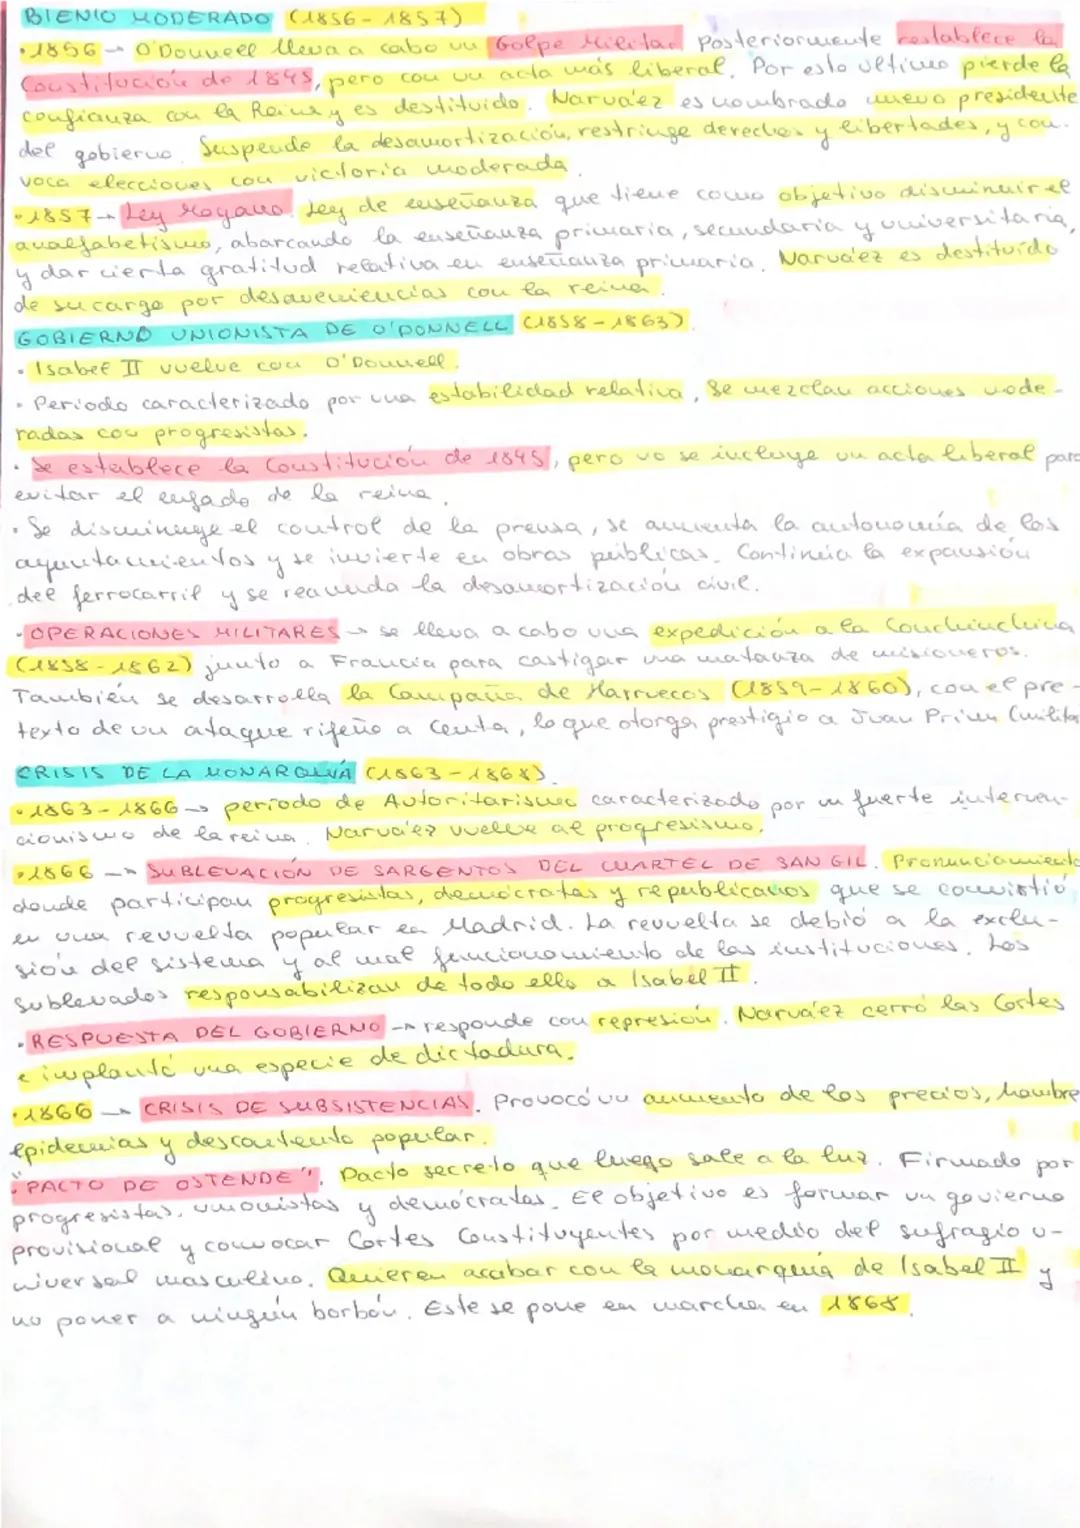 BIENIO MODERADO (1856-1857)
·1856→ O'Donnell lleva a cabo un Golpe Militar. Posteriormente restablece la
Constitución de 1845, pero con un acta más liberal. Por esto último pierde la
confianza con la Reina y es destituido. Narváez es nombrado nuevo presidente
del gobierno. Suspende la desamortización, restringe derechos y libertades, y con-
voca elecciones con victoria moderada.
·1857→ Ley Moyano. Ley de enseñanza que tiene como objetivo disminuir el
analfabetismo, abarcando la enseñanza primaria, secundaria y universitaria,
y dar cierta gratitud relativa en enseñanza primaria. Narváez es destituído
de su cargo por desaveniencias con la reina.
GOBIERNO UNIONISTA DE O'DONNELL (1858-1863).
· Isabel II vuelve con O'Donnell.
· Periodo caracterizado por una estabilidad relativa, se mezclan acciones mode-
radas con progresistas.
· Se establece la Constitución de 1845, pero no se incluye un acta liberal para
evitar el enfado de la reina.
· Se disminuye el control de la prensa, se aumenta la autonomía de los
ayuntamientos y se invierte en obras públicas. Continúa la expansión
del ferrocarril y se reanuda la desamortización civil.
·OPERACIONES MILITARES→ se lleva a cabo una expedición a la Conchinchina
(1858-1862) junto a Francia para castigar una matanza de misioneros.
También se desarrolla la Campaña de Marruecos (1859-1860), con el pre-
texto de un ataque rifeño a Ceuta, lo que otorga prestigio a Juan Prim (milita
CRISIS DE LA MONARQUÍA (1863-1868).
·1863-1866→ período de Autoritarismo caracterizado por un fuerte interven-
cionismo de la reina. Narváez vuelve al progresismo.
·1866→ SUBLEVACIÓN DE SARGENTOS DEL CUARTEL DE SAN GIL. Pronunciamiento
donde participan progresistas, demócratas y republicanos que se convirtió
en una revuelta popular en Madrid. La revuelta se debió a la exclu-
sión del sistema y al mal funcionamiento de las instituciones. Los
sublevados responsabilizan de todo ello a Isabel II.
·RESPUESTA DEL GOBIERNO→ responde con represión. Narváez cerró las Cortes
e implantó una especie de dictadura.
·1866→ CRISIS DE SUBSISTENCIAS. Provocó un aumento de los precios, hambre
epidemias y descontento popular.
·"PACTO DE OSTENDE". Pacto secreto que luego sale a la luz. Firmado por
progresistas, unionistas y demócratas. El objetivo es formar un govierno
provisional y convocar Cortes Constituyentes por medio del sufragio u-
niversal masculino. Quieren acabar con la monarquía de Isabel II y
no poner a ningún borbón. Este se pone en marcha en 1868.